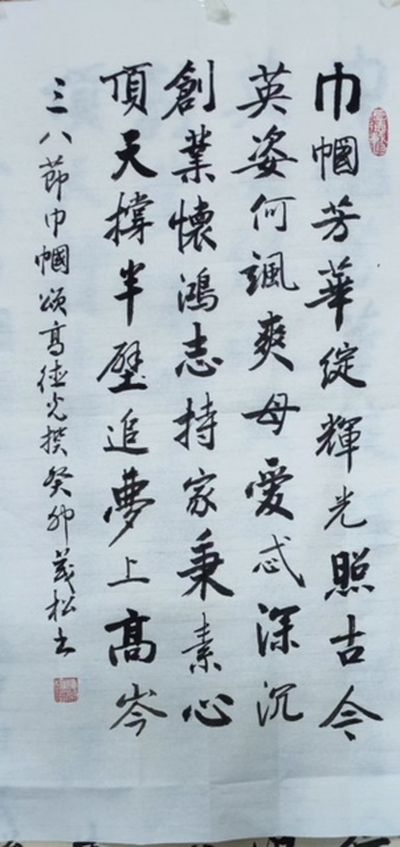 巾幗芳華綻輝光照古今
英姿何颯爽母愛忒深沉
創業懷鴻志持家秉素心
頂天撐半壁追夢上高岑
三八節巾幗頌高德光撰癸卯茂松书